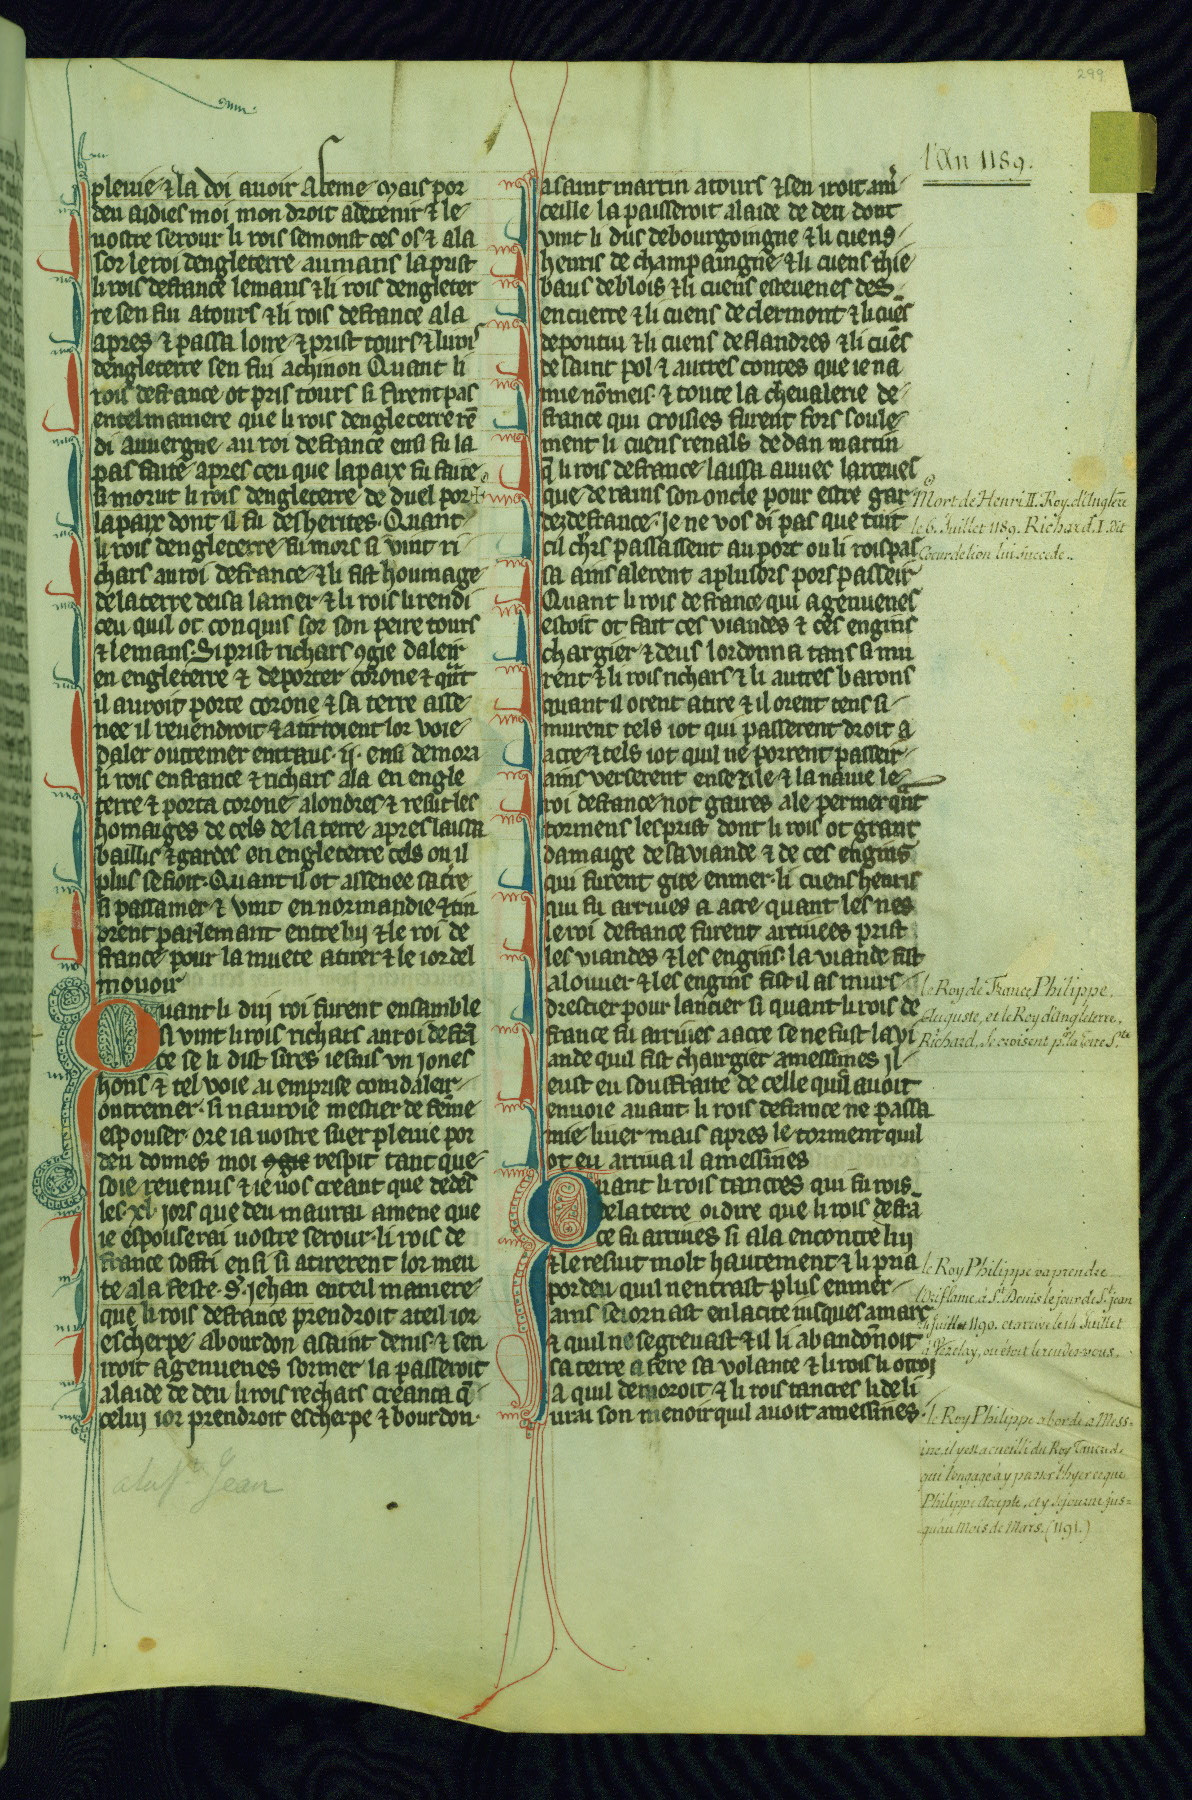 299
l'An 1189.
plevie ⁊ la doi avoir a feme mais por
deu aidies moi mon droit a detenir ⁊ le
vostre serour li rois semonst ces os ⁊ ala
sor le roi dengleterre au mans la prist
li rois de france le mans ⁊ li rois dengleter
re sen fui a tours ⁊ li rois de france ala
apres ⁊ passa loire ⁊ prist tours ⁊ li rois
dengleterre sen fui a chinon Quant li
rois de france ot pris tours si firent pas
en tel maniere que li rois dengleterre rē
di auvergne au roi de france ensi fu la
pas faite apres ceu que la paix fu faite
si morut li rois dengleterre de duel por
la paix dont il fu desherites. Quant
li rois dengleterre fu mors si vint ri
chars au roi de france ⁊ li fist houmage
de la terre deisa la mer ⁊ li rois li rendi
ceu quil ot conquis sor son peire tours
⁊ le mans. Si prist richars ꝯgie daleir
en engleterre ⁊ de porter corone ⁊ q̄nt
il auroit porte corone ⁊ sa terre asse
nee il revendroit ⁊ atirroient lor voie
daler outremer entraus .ij. ensi demora
li rois en france ⁊ richars ala en engle
terre ⁊ porta corone a londres ⁊ resut les
homaiges de cels de la terre apres laissa
baillis ⁊ gardes en engleterre cels ou il
plus se fioit. Quant il ot assenee sa t̄re
si passa mer ⁊ vint en normandie ⁊ tin
drent parlemant entre luj ⁊ le roi de
france pour la muete atirer ⁊ le ior del
movoir
Quant li dui roi furent ensamble
si vint li rois richars au roi de frā
ce se li dist sires ie suis vn jones
hons ⁊ tel voie ai emprise com daleir
outremer. si nauroie mestier de fēme
espouser. ore ia vostre suer plevie por
deu donnes moi ꝯgie respit tant que
soie revenus ⁊ ie vos creant que dedēs
les .xl. jors que deu maurai amene que
ie espouserai vostre serour. li rois de
france soffri ensi si atirerent lor meu
te a la feste .S. jehan en teil maniere
que li rois de france prendroit a teil ior
escherpe a bourdon a saint denis ⁊ sen
iroit a genuenes sor mer la passeroit
a laide de deu li rois rechars creanta q̄
celuj ior prendroit escherpe ⁊ bourdon.
a la St Jean
a saint martin a tours ⁊ sen iroit a m̄
ceille la passeroit a laide de deu dont
vint li dus de bourgoingne ⁊ li cuens
henris de champaingne ⁊ li cuens thie
baus de blois ⁊ li cuens estevenes de S.
en cuerre ⁊ li cuens de clermont ⁊ li cuēs
de pontiu ⁊ li cuens de flandres ⁊ li cuēs
de saint pol ⁊ autres contes que ie na
mie nōmeis. ⁊ toute la chevalerie de
france qui croisies furent fors soule
ment li cuens renals de dan martin
q̄ li rois de france laissa avuec larceves
que de rains son oncle pour estre gar
de de france. je ne vos di pas que tuit
cil ch̄rs passassent au port ou li rois pas
sa ains alerent a plusors pors passeir
Quant li rois de france qui a genuenes
estoit ot fait ces viandes ⁊ ces engins
chargier ⁊ deus lor donna tans si mu
rent ⁊ li rois richars ⁊ li autres barons
quant il orent atire ⁊ il orent tens si
murent tels iot qui passerent droit a
acre ⁊ tels iot quil ne porrent passeir
ains verserent en sezile ⁊ la navie le
roi de france not gaires ale per mer q̄nt
tormens les prist dont li rois ot grant
damaige de sa viande ⁊ de ces engins
qui furent gite en mer. li cuens henris
qui fu arrives a acre quant les nes
le roi de france furent arrivees prist
les viandes ⁊ les engins. la viande fist
alouier ⁊ les engins fist il as murs
drescier pour lancier si quant li rois de
france fu arrives a acre se ne fust la vi
ande quil fist chairgier a messines il
eust eu souffraite de celle quil avoit
envoie avant li rois de france ne passa
mie liver mais apres le torment quil
ot eu arriva il a messines
Quant li rois tancres qui fu rois
de la terre oi dire que li rois de frā
ce fu arrives si ala encontre luj
⁊ le resuit molt hautement ⁊ li pria
por deu quil nentrast plus en mer
ains seiornast en la cite iusques a marc
⁊ quil ne se grevast ⁊ il li abandōnoit
sa terre a fere sa volante ⁊ li rois li otroj
a quil demoroit ⁊ li rois tancres li deli
vrai son menoir quil avoit a messines.
Mort de Henri II. Roy d'Anglēre
le 6. Juillet 1189. Richard I. dit
Coeur de lion lui succede..
le Roy de France Philippe
Auguste, et le Roy d'Angleterre,
Richard, se croisent pr la Terre Ste
le Roy Philippe va prendre
l'Oriflame à St Denis le jour de St jean
24 juillet 1190. et arrive le 14 Juillet
à Vezelay, ou etoit le rendez-vous.
le Roy Philippe aborde a Mess=
ine, il y est accueilli du Roy Tancrede
qui l'engage à y passer l'hyver ce que
Philippe accepte, et y sejourne jus=
qu'au Mois de Mars. (1191.)